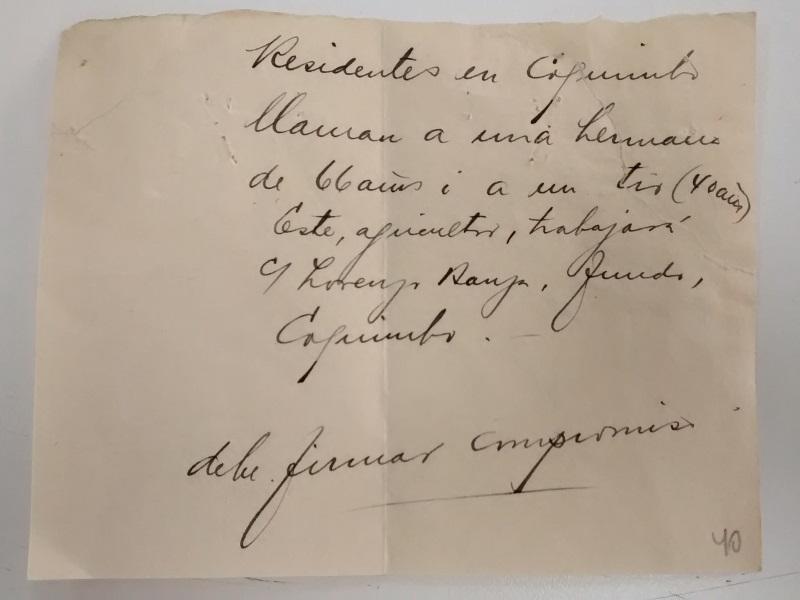 Residentes en Coquimbo
llaman a una hermana
de 66 años i a un tio (40 años)
Este, agricultor, trabajará
c/ Lorenzo , fundo,
Coquimbo. —
debe firmar compromiso
40